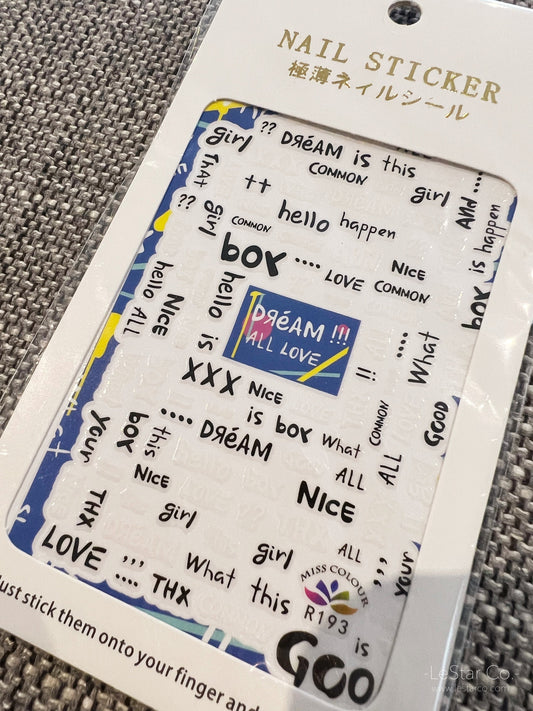 NAIL STICKER
極薄ネイルシール
girl ?? DЯéAM is this
COMMON
girl
And ....
THAT
++
?? girl
COMMON
hello happen
box is happen
box .... LOVE
NICE
COMMON
hello ALL
NICE
hello is
DЯéAM !!!
ALL LOVE
!!
....
What
XXX NICE
is box What
COMMON
GOOD
.... DЯéAM
ALL
ALL
Your
box
this
NICE
NICE
THX
girl
girl
ALL
LOVE
,,,
....
THX
What this
MISS COLOUR
R193
is
,,,
your
GOO
Just stick them onto your finger and
-LeStar Co.-
www.lestarco.com